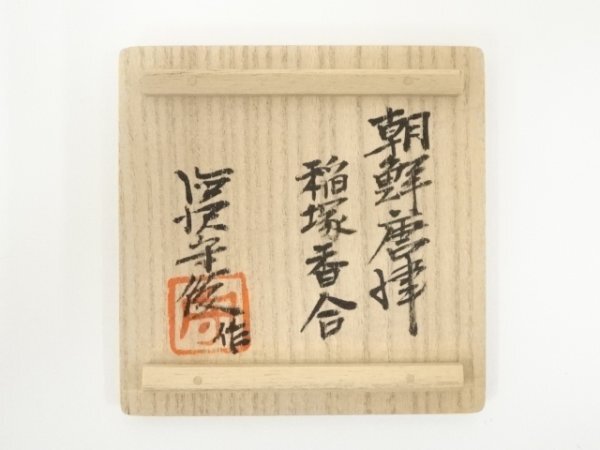 朝鮮唐津
稲塚香合
守俊作